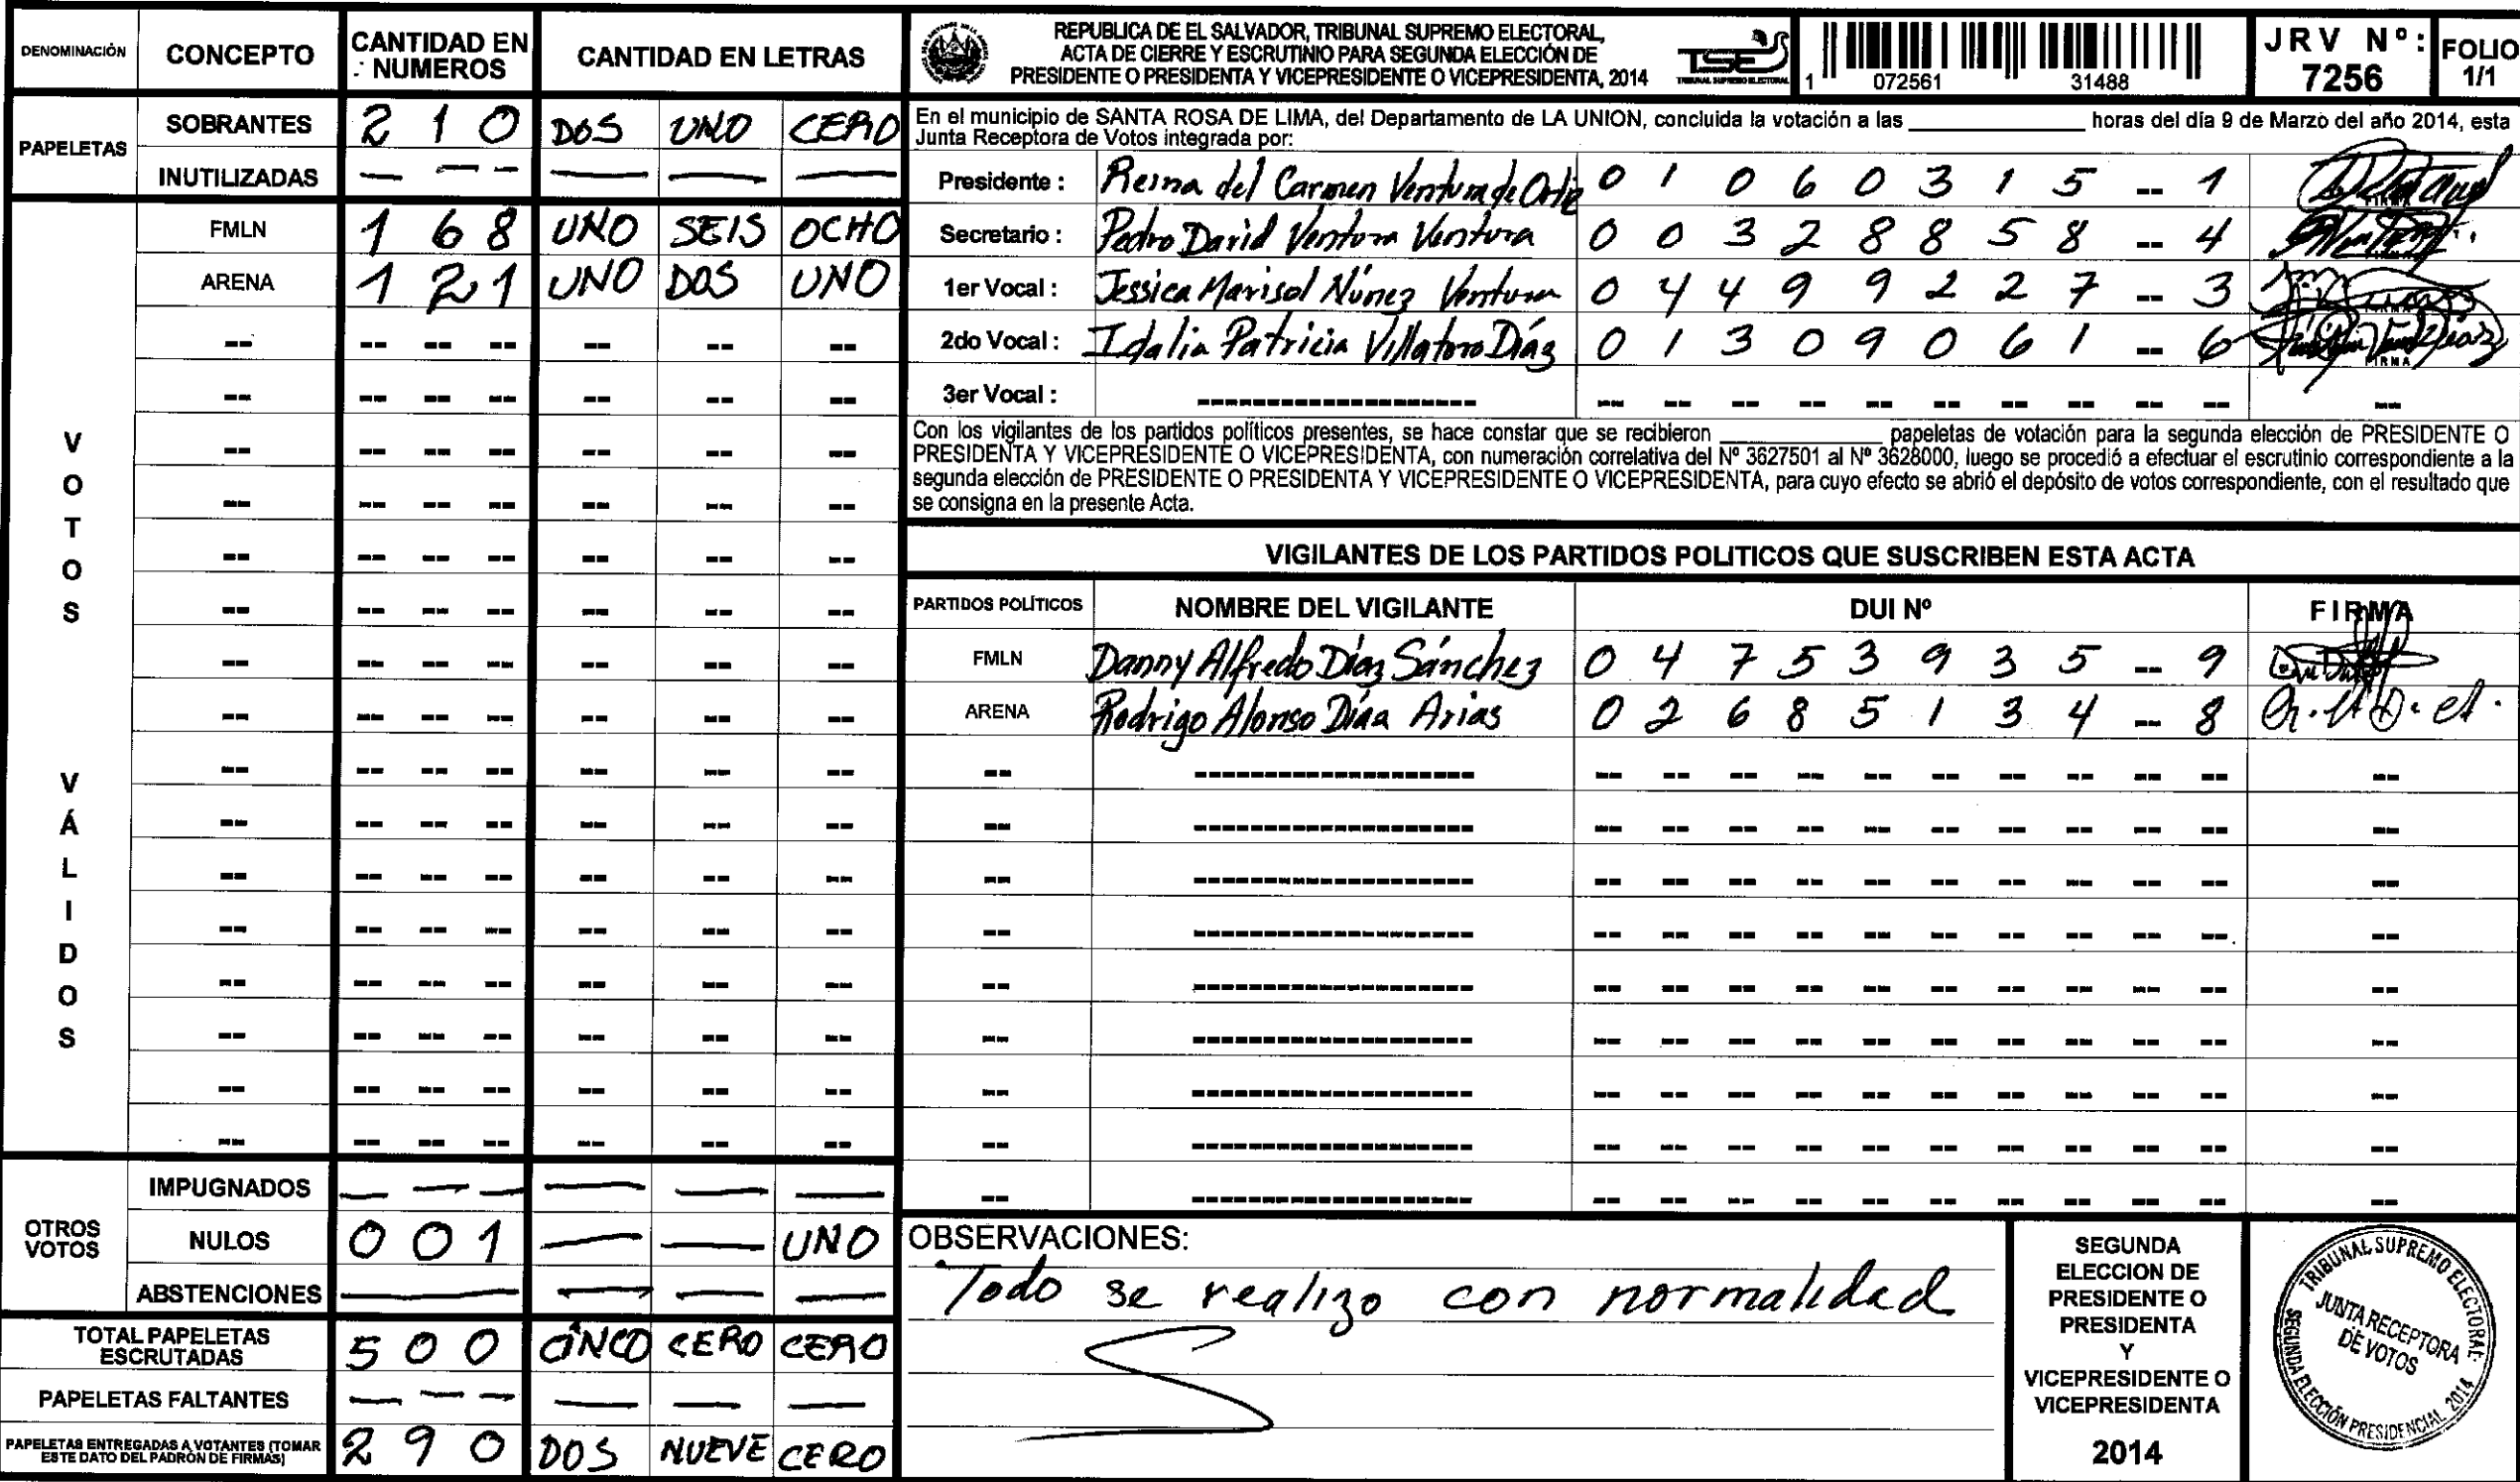 DENOMINACIÓN CONCEPTO CANTIDAD EN NUMEROS CANTIDAD EN LETRAS
PAPELETAS
SOBRANTES 2 1 0 DOS UNO CERO
INUTILIZADAS — — — — — —
VOTOS VÁLIDOS
FMLN 1 6 8 UNO SEIS OCHO
ARENA 1 2 1 UNO DOS UNO
OTROS VOTOS
IMPUGNADOS — — — — — —
NULOS 0 0 1 — — UNO
ABSTENCIONES — — — —
TOTAL PAPELETAS ESCRUTADAS 5 0 0 CINCO CERO CERO
PAPELETAS FALTANTES — — — — — —
PAPELETAS ENTREGADAS A VOTANTES (TOMAR ESTE DATO DEL PADRÓN DE FIRMAS) 2 9 0 DOS NUEVE CERO
REPUBLICA DE EL SALVADOR, TRIBUNAL SUPREMO ELECTORAL,
ACTA DE CIERRE Y ESCRUTINIO PARA SEGUNDA ELECCIÓN DE
PRESIDENTE O PRESIDENTA Y VICEPRESIDENTE O VICEPRESIDENTA, 2014
TSE
TRIBUNAL SUPREMO ELECTORAL
1 072561 31488
JRV Nº: 7256
FOLIO 1/1
En el municipio de SANTA ROSA DE LIMA, del Departamento de LA UNION, concluida la votación a las ____________ horas del día 9 de Marzo del año 2014, esta
Junta Receptora de Votos integrada por:
Presidente : Reina del Carmen Ventura de Ortiz 0 1 0 6 0 3 1 5 -- 1
Secretario : Pedro David Ventura Ventura 0 0 3 2 8 8 5 8 -- 4
1er Vocal : Jessica Marisol Núnez Ventura 0 4 4 9 9 2 2 7 -- 3
2do Vocal : Idalia Patricia Villatoro Díaz 0 1 3 0 9 0 6 1 -- 6 FIRMA
3er Vocal :
Con los vigilantes de los partidos políticos presentes, se hace constar que se recibieron ____________ papeletas de votación para la segunda elección de PRESIDENTE O
PRESIDENTA Y VICEPRESIDENTE O VICEPRESIDENTA, con numeración correlativa del Nº 3627501 al Nº 3628000, luego se procedió a efectuar el escrutinio correspondiente a la
segunda elección de PRESIDENTE O PRESIDENTA Y VICEPRESIDENTE O VICEPRESIDENTA, para cuyo efecto se abrió el depósito de votos correspondiente, con el resultado que
se consigna en la presente Acta.
VIGILANTES DE LOS PARTIDOS POLITICOS QUE SUSCRIBEN ESTA ACTA
PARTIDOS POLÍTICOS NOMBRE DEL VIGILANTE DUI Nº FIRMA
FMLN Danny Alfredo Díaz Sánchez 0 4 7 5 3 9 3 5 -- 9
ARENA Rodrigo Alonso Díaz Arias 0 2 6 8 5 1 3 4 -- 8
OBSERVACIONES:
Todo se realizo con normalidad
SEGUNDA
ELECCION DE
PRESIDENTE O
PRESIDENTA
Y
VICEPRESIDENTE O
VICEPRESIDENTA
2014
TRIBUNAL SUPREMO ELECTORAL
JUNTA RECEPTORA
DE VOTOS
SEGUNDA ELECCIÓN PRESIDENCIAL 2014